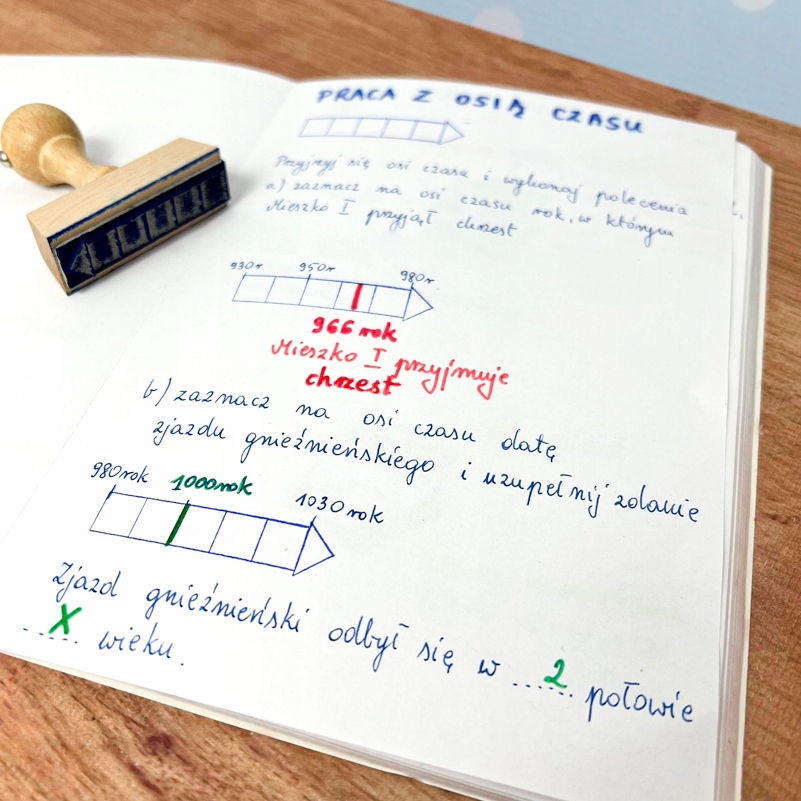 PRACA Z OSIĄ CZASU
Przyjrzyj się osi czasu i wykonaj polecenia
a) zaznacz na osi czasu rok, w którym
Mieszko I przyjął chrzest
930r 950r 980r
966 rok
Mieszko I przyjmuje
chrzest
b) zaznacz na osi czasu datę
zjazdu gnieźnieńskiego i uzupełnij zdanie
980rok 1000rok 1030 rok
Zjazd gnieźnieński odbył się w ...2... połowie
...X... wieku.